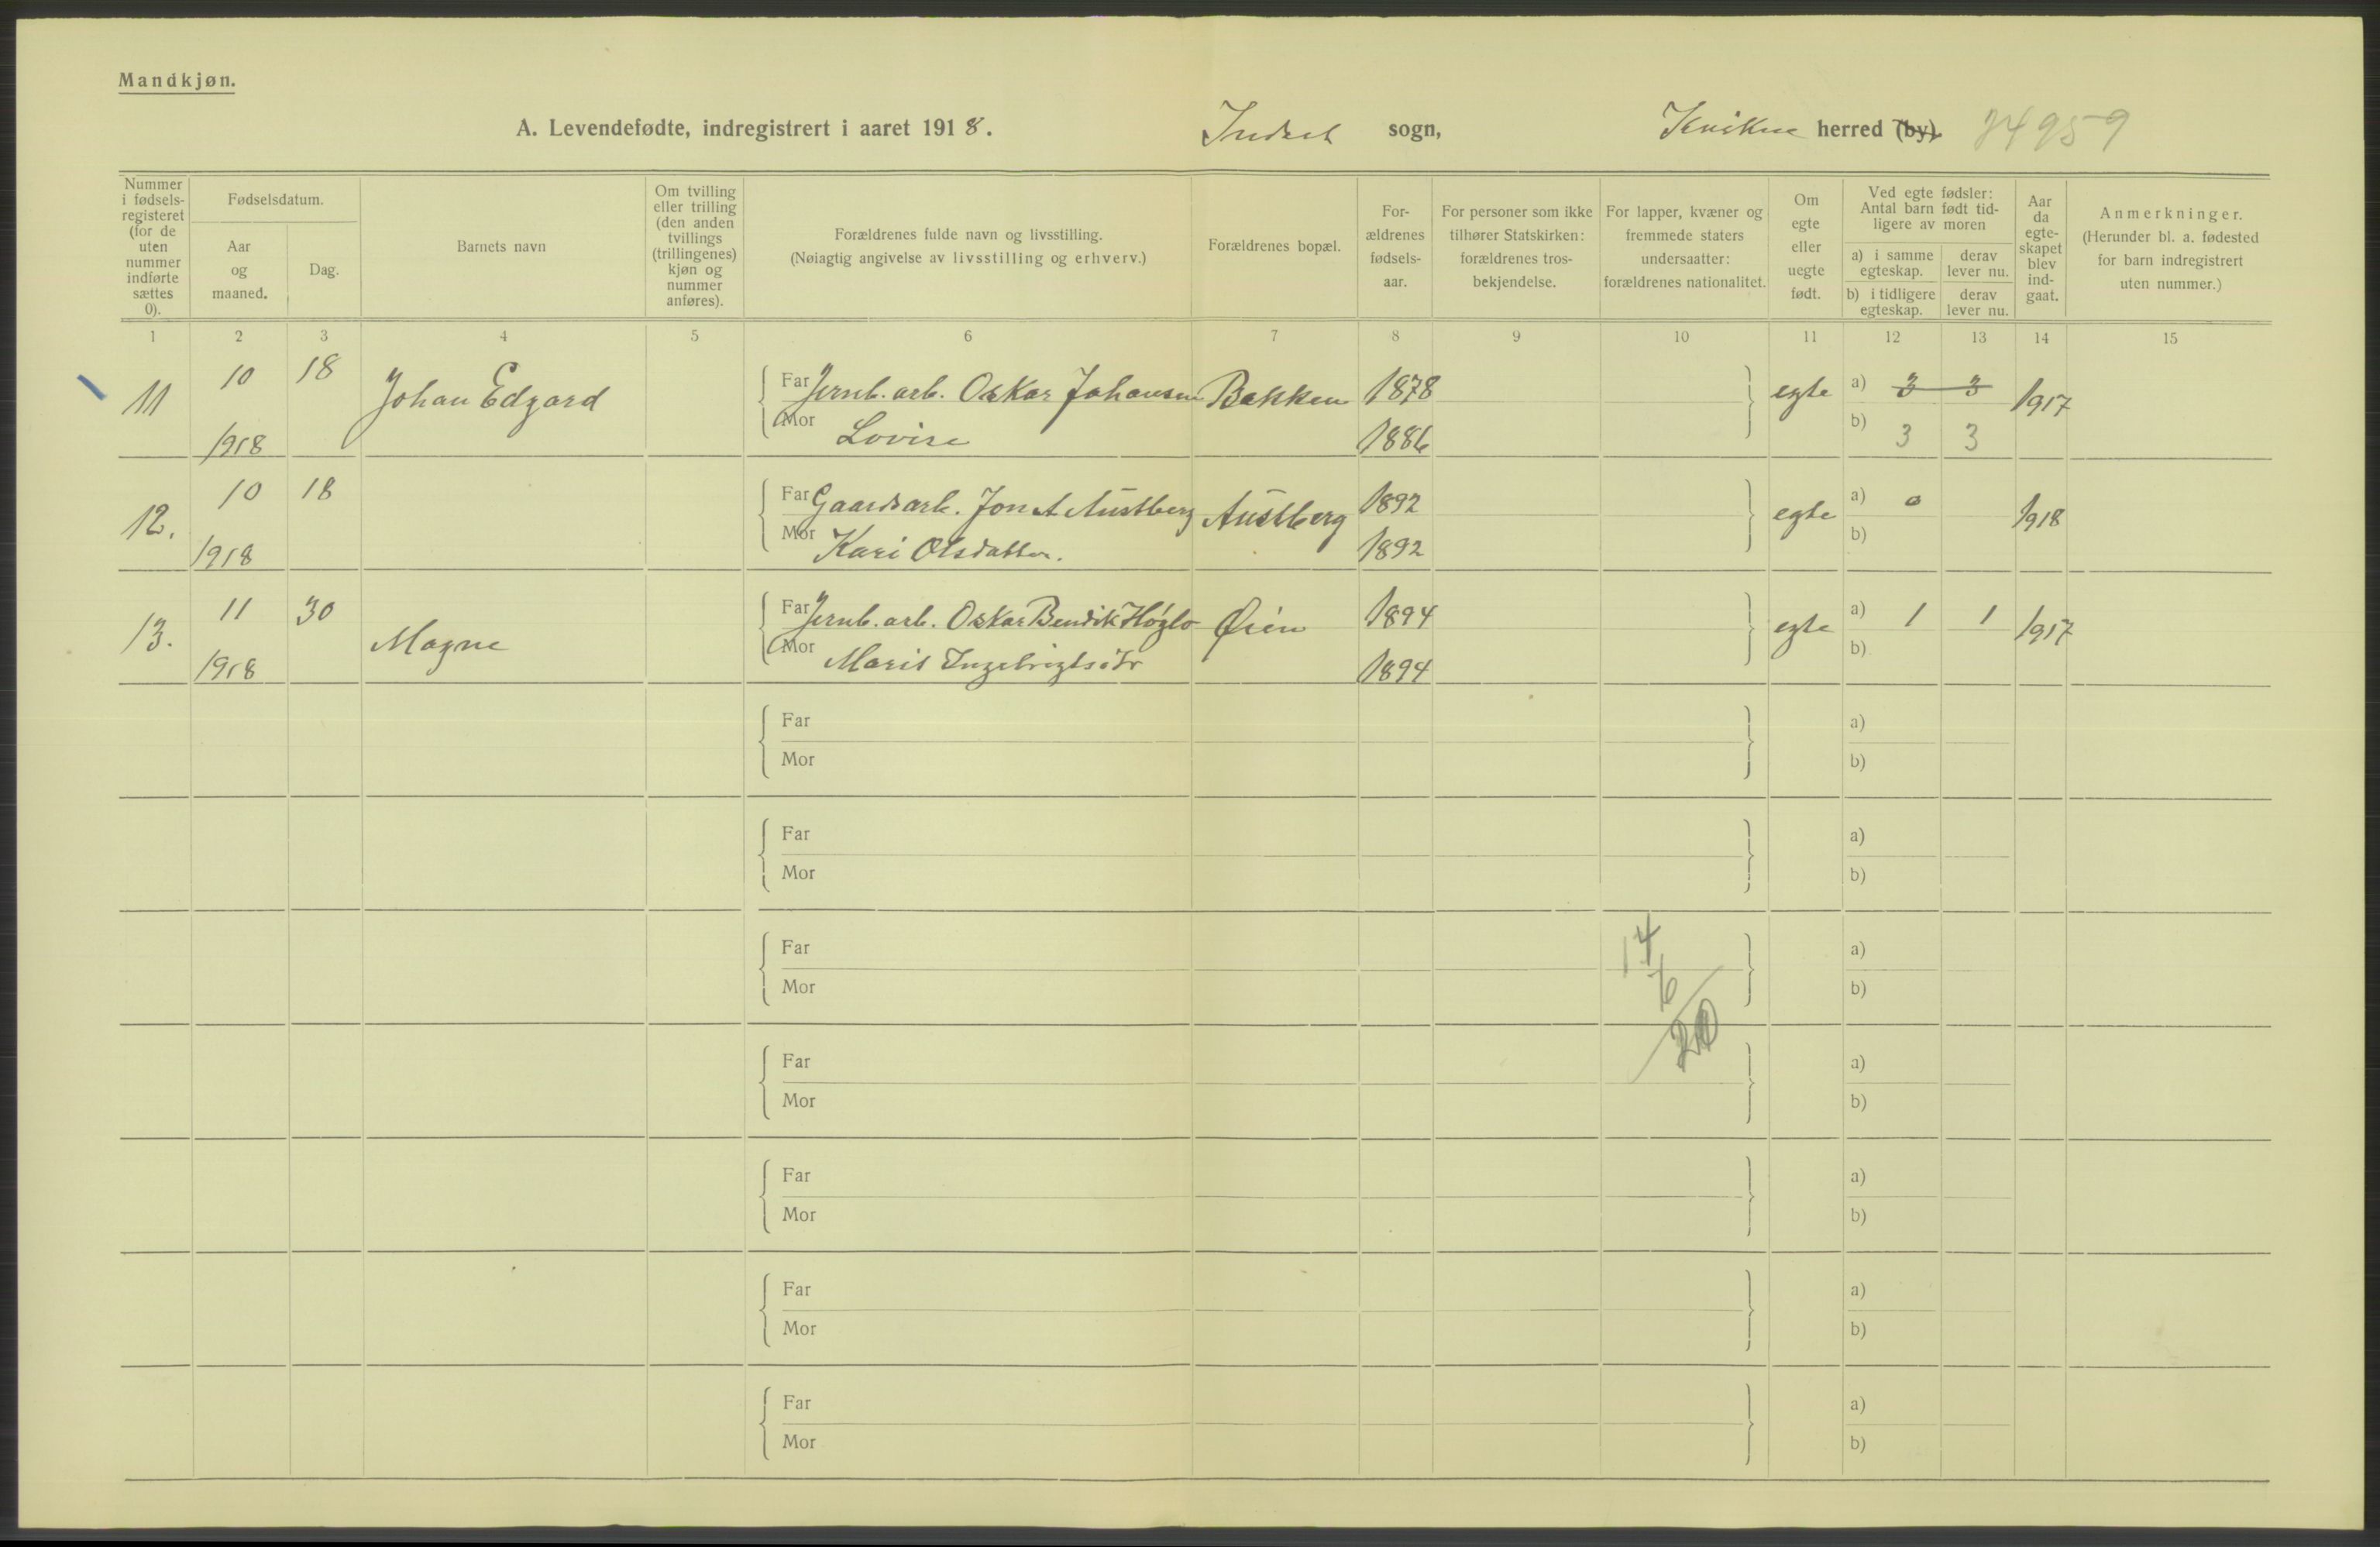 Mandkjøn.
A. Levendefødte, indregistrert i aaret 1918. Indset sogn, Kvikne herred (by).
Nummer i fødsels-registeret (for de uten nummer indførte sættes 0).
Fødselsdatum.
Aar og maaned.
Dag.
Barnets navn
Om tvilling eller trilling (den anden tvillings (trillingenes) kjøn og nummer anføres).
Forældrenes fulde navn og livsstilling.
(Nøiagtig angivelse av livsstilling og erhverv.)
Forældrenes bopæl.
For-ældrenes fødsels-aar.
For personer som ikke tilhører Statskirken: forældrenes tros-bekjendelse.
For lapper, kvæner og fremmede staters undersaatter: forældrenes nationalitet.
Om egte eller uegte født.
Ved egte fødsler: Antal barn født tid-ligere av moren
a) i samme egteskap.
derav lever nu.
b) i tidligere egteskap.
derav lever nu.
Aar da egte-skapet blev ind-gaat.
Anmerkninger.
(Herunder bl. a. fødested for barn indregistrert uten nummer.)
1 2 3 4 5 6 7 8 9 10 11 12 13 14 15
11 10 18 Johan Edgard Far Jernb. arb. Oskar Johansen Bakken 1878 egte a) 3 3 1917
1918 Mor Lovise 1886 b) 3 3
12. 10 18 Far Gaardsarb. Jon A Austberg Austberg 1892 egte a) 0 1918
1918 Mor Kari Olsdatter. 1892 b)
13. 11 30 Magne Far Jernb. arb. Oskar Bendik Høglo Øien 1894 egte a) 1 1 1917
1918 Mor Marit Ingebrigtsdtr 1894 b)
Far a)
Mor b)
Far a)
Mor b)
Far 14 a)
Mor 6 b)
Far 20 a)
Mor b)
Far a)
Mor b)
Far a)
Mor b)
Far a)
Mor b)